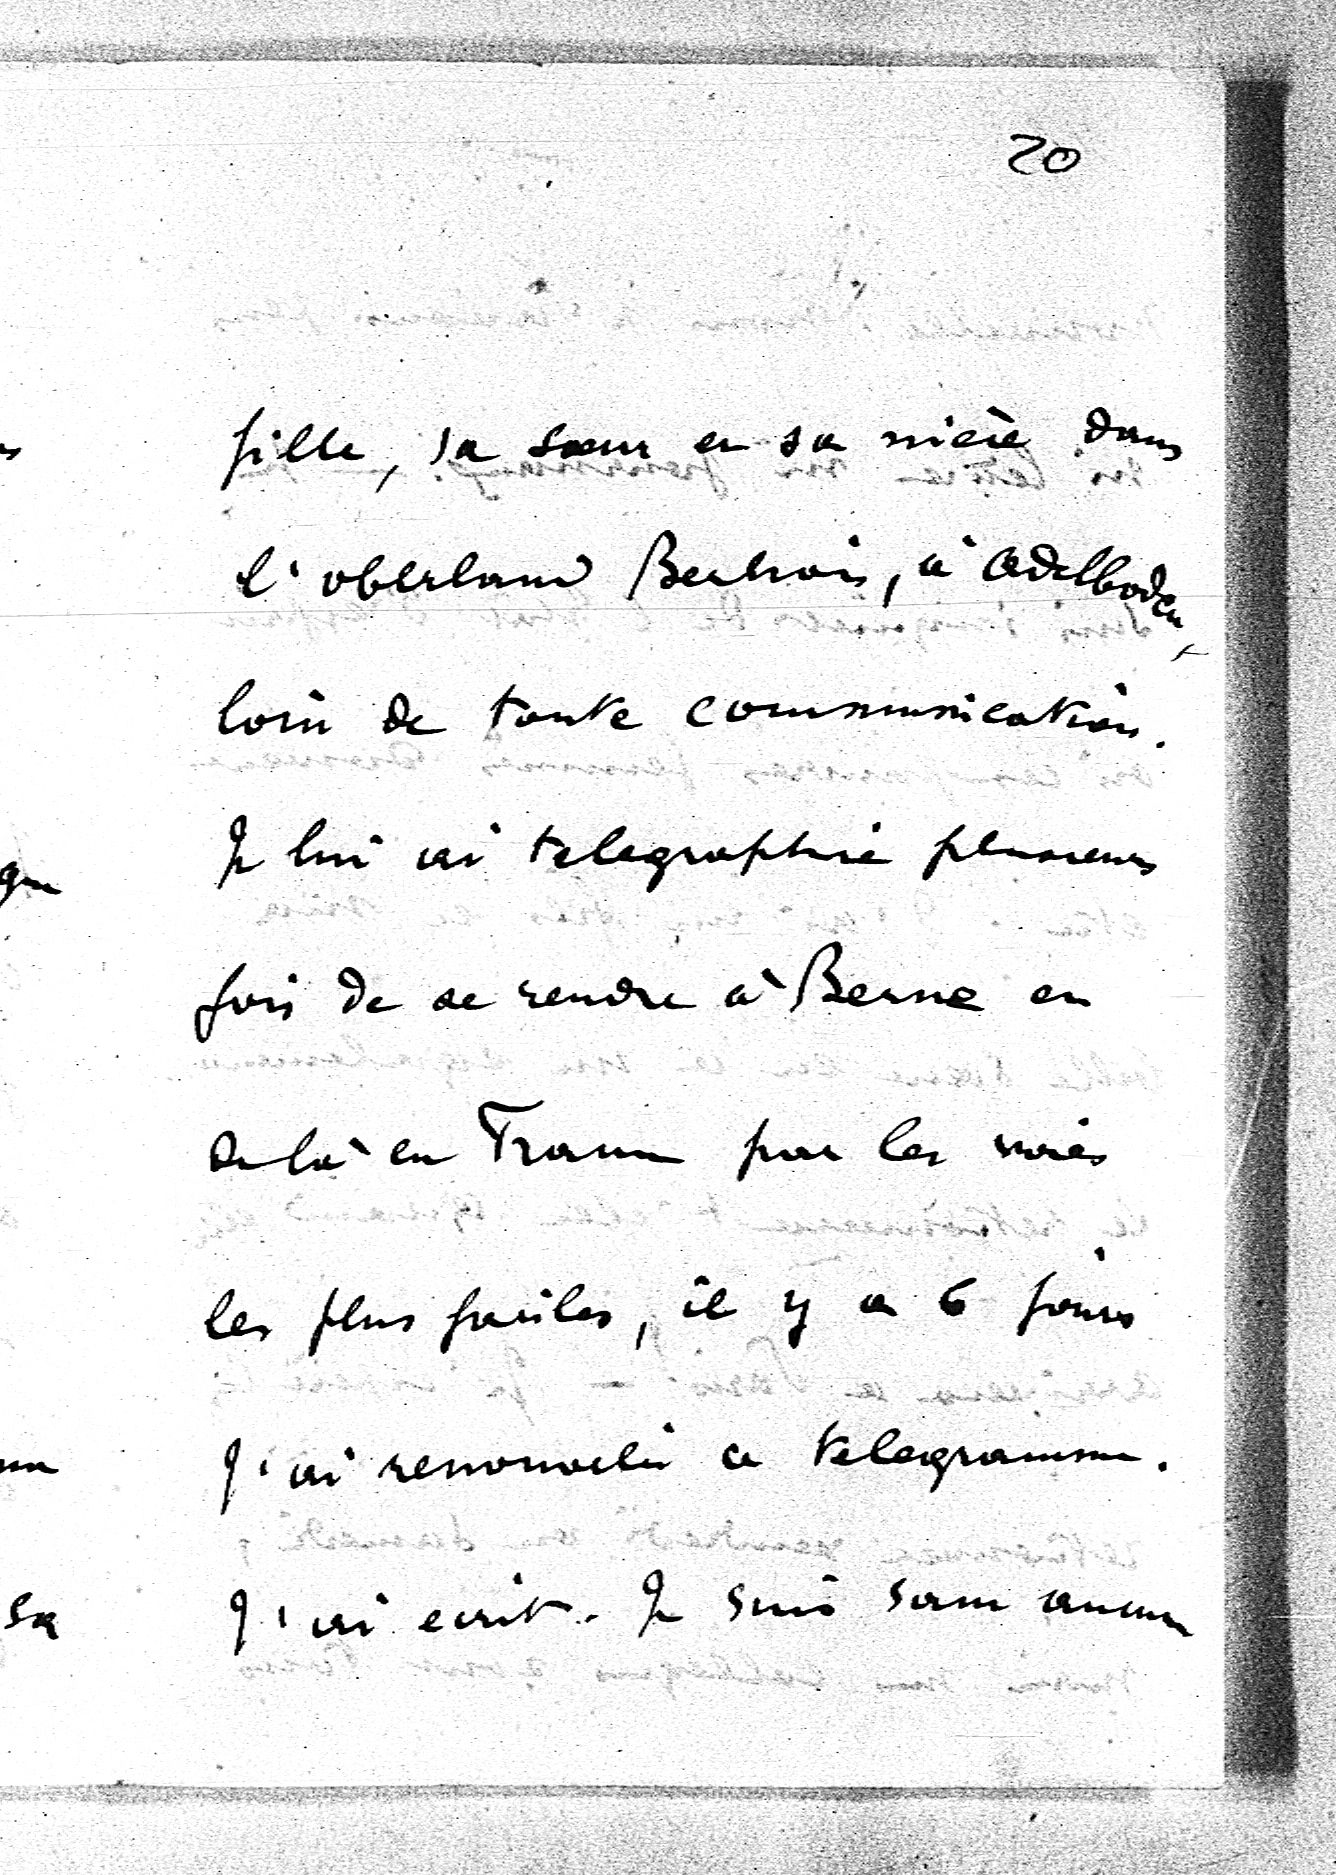 20
fille, sa sœur et sa nièce dans
l'oberland Bernois, à Adelboden,
loin de toute communication.
Je lui ai telegraphié plusieurs
fois de se rendre à Berne et
de là en France par les voies
les plus faciles, il y a 6 jours
j'ai renouvelé ce telegramme.
J'ai ecrit. Je suis sans aucun